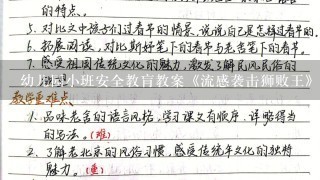 的特点。
5. 对比文中孩子们过春节的情景,说说自己是怎样过春节的。
6. 拓展阅读,对比斯妤笔下的春节与老舍笔下的春节。
7. 感受祖国传统文化的魅力,激发了解民风民俗的
幼儿园小班安全教育教案《流感袭击狮败王》
教学重难点
1. 品味老舍的语言风格,学习课文有顺序、详略得当
的写法。(难)
2. 了解老北京的风俗习惯,感受传统年文化的独特
魅力。(重)